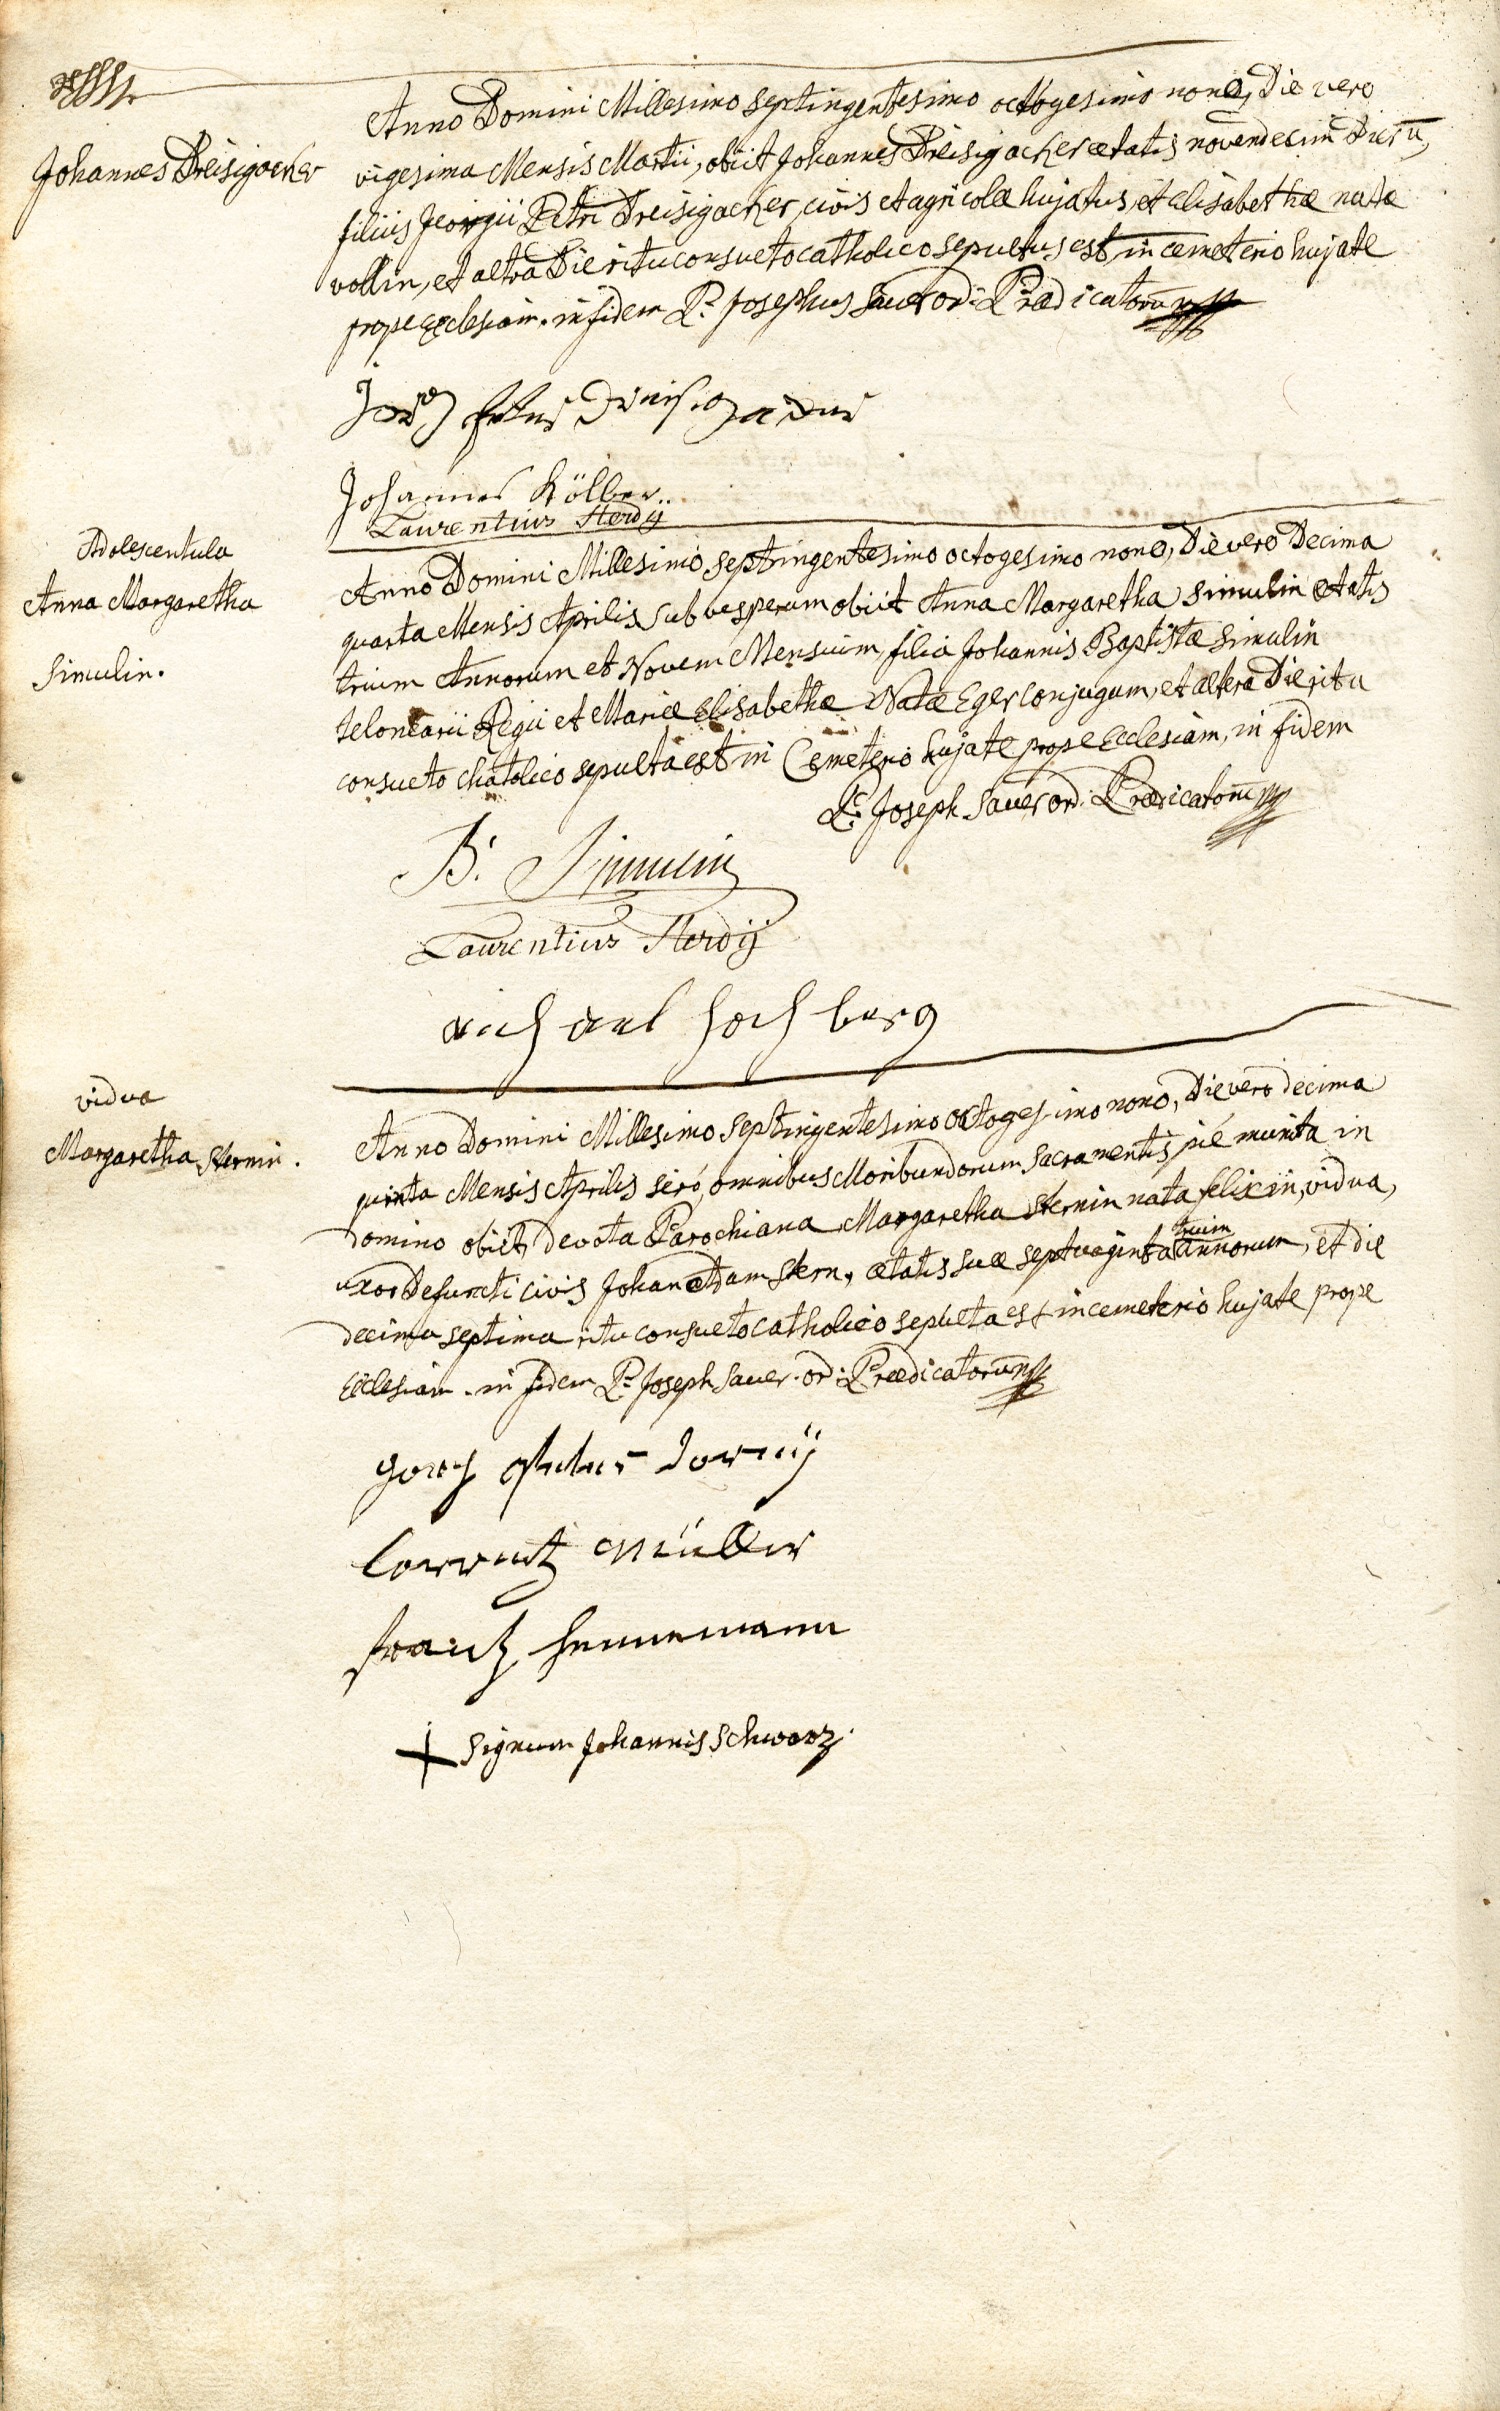 Johannes Dreisigacker
Anno Domini Millesimo septingentesimo octogesimo nono, Die vero
vigesima Mensis Martii, obiit Johannes Dreisigacker ætatis novendecim Dierū,
filius Georgii Petri Dreisigacker, civis et agricolæ hujatus, et Elisabethæ natæ
vollin, et altra Die ritu consueto catholico sepultus est in cemeterio hujate
prope Ecclesiam. in fidem P: Josephus Sauer ord: Prædicatorū
Johannes Kölber..
Laurentius Herdÿ
Adolescentula
Anna Margaretha
Simulin.
Anno Domini Millesimo septingentesimo octogesimo nono, Die vero Decima
quarta Mensis Aprilis sub vesperum obiit Anna Margaretha Simulin ætatis
trium Annorum et Novem Mensium, filia Johannis Baptistæ Simulin
telonearii Regii et Mariæ Elisabethæ Natæ Eger conjugum, et altera Die ritu
consueto chatolico sepulta est in Cemeterio hujate prope Ecclesiam, in fidem
P: Joseph Sauer ord: Prædicatorū
B. Simulin
Laurentius Herdÿ
Michael Hochberg
vidua
Margaretha Sternin.
Anno Domini Millesimo septingentesimo octogesimo nono, Die vero decima
quinta Mensis Aprilis seró, omnibus Moribundorum sacramentis pié munita in
domino obiit, devota Parochiana Margaretha Sternin nata felixin, vidua,
uxor Defuncti civis Johan Adam Stern, ætatis suæ septuaginta trium annorum, et die
decima septima ritu consueto catholico sepulta est in cemeterio hujate prope
Ecclesiam. in fidem P: Joseph Sauer. ord: Prædicatorū
Lorentz Müller
Frantz Hennemann
Signum Johannis Schwarz.